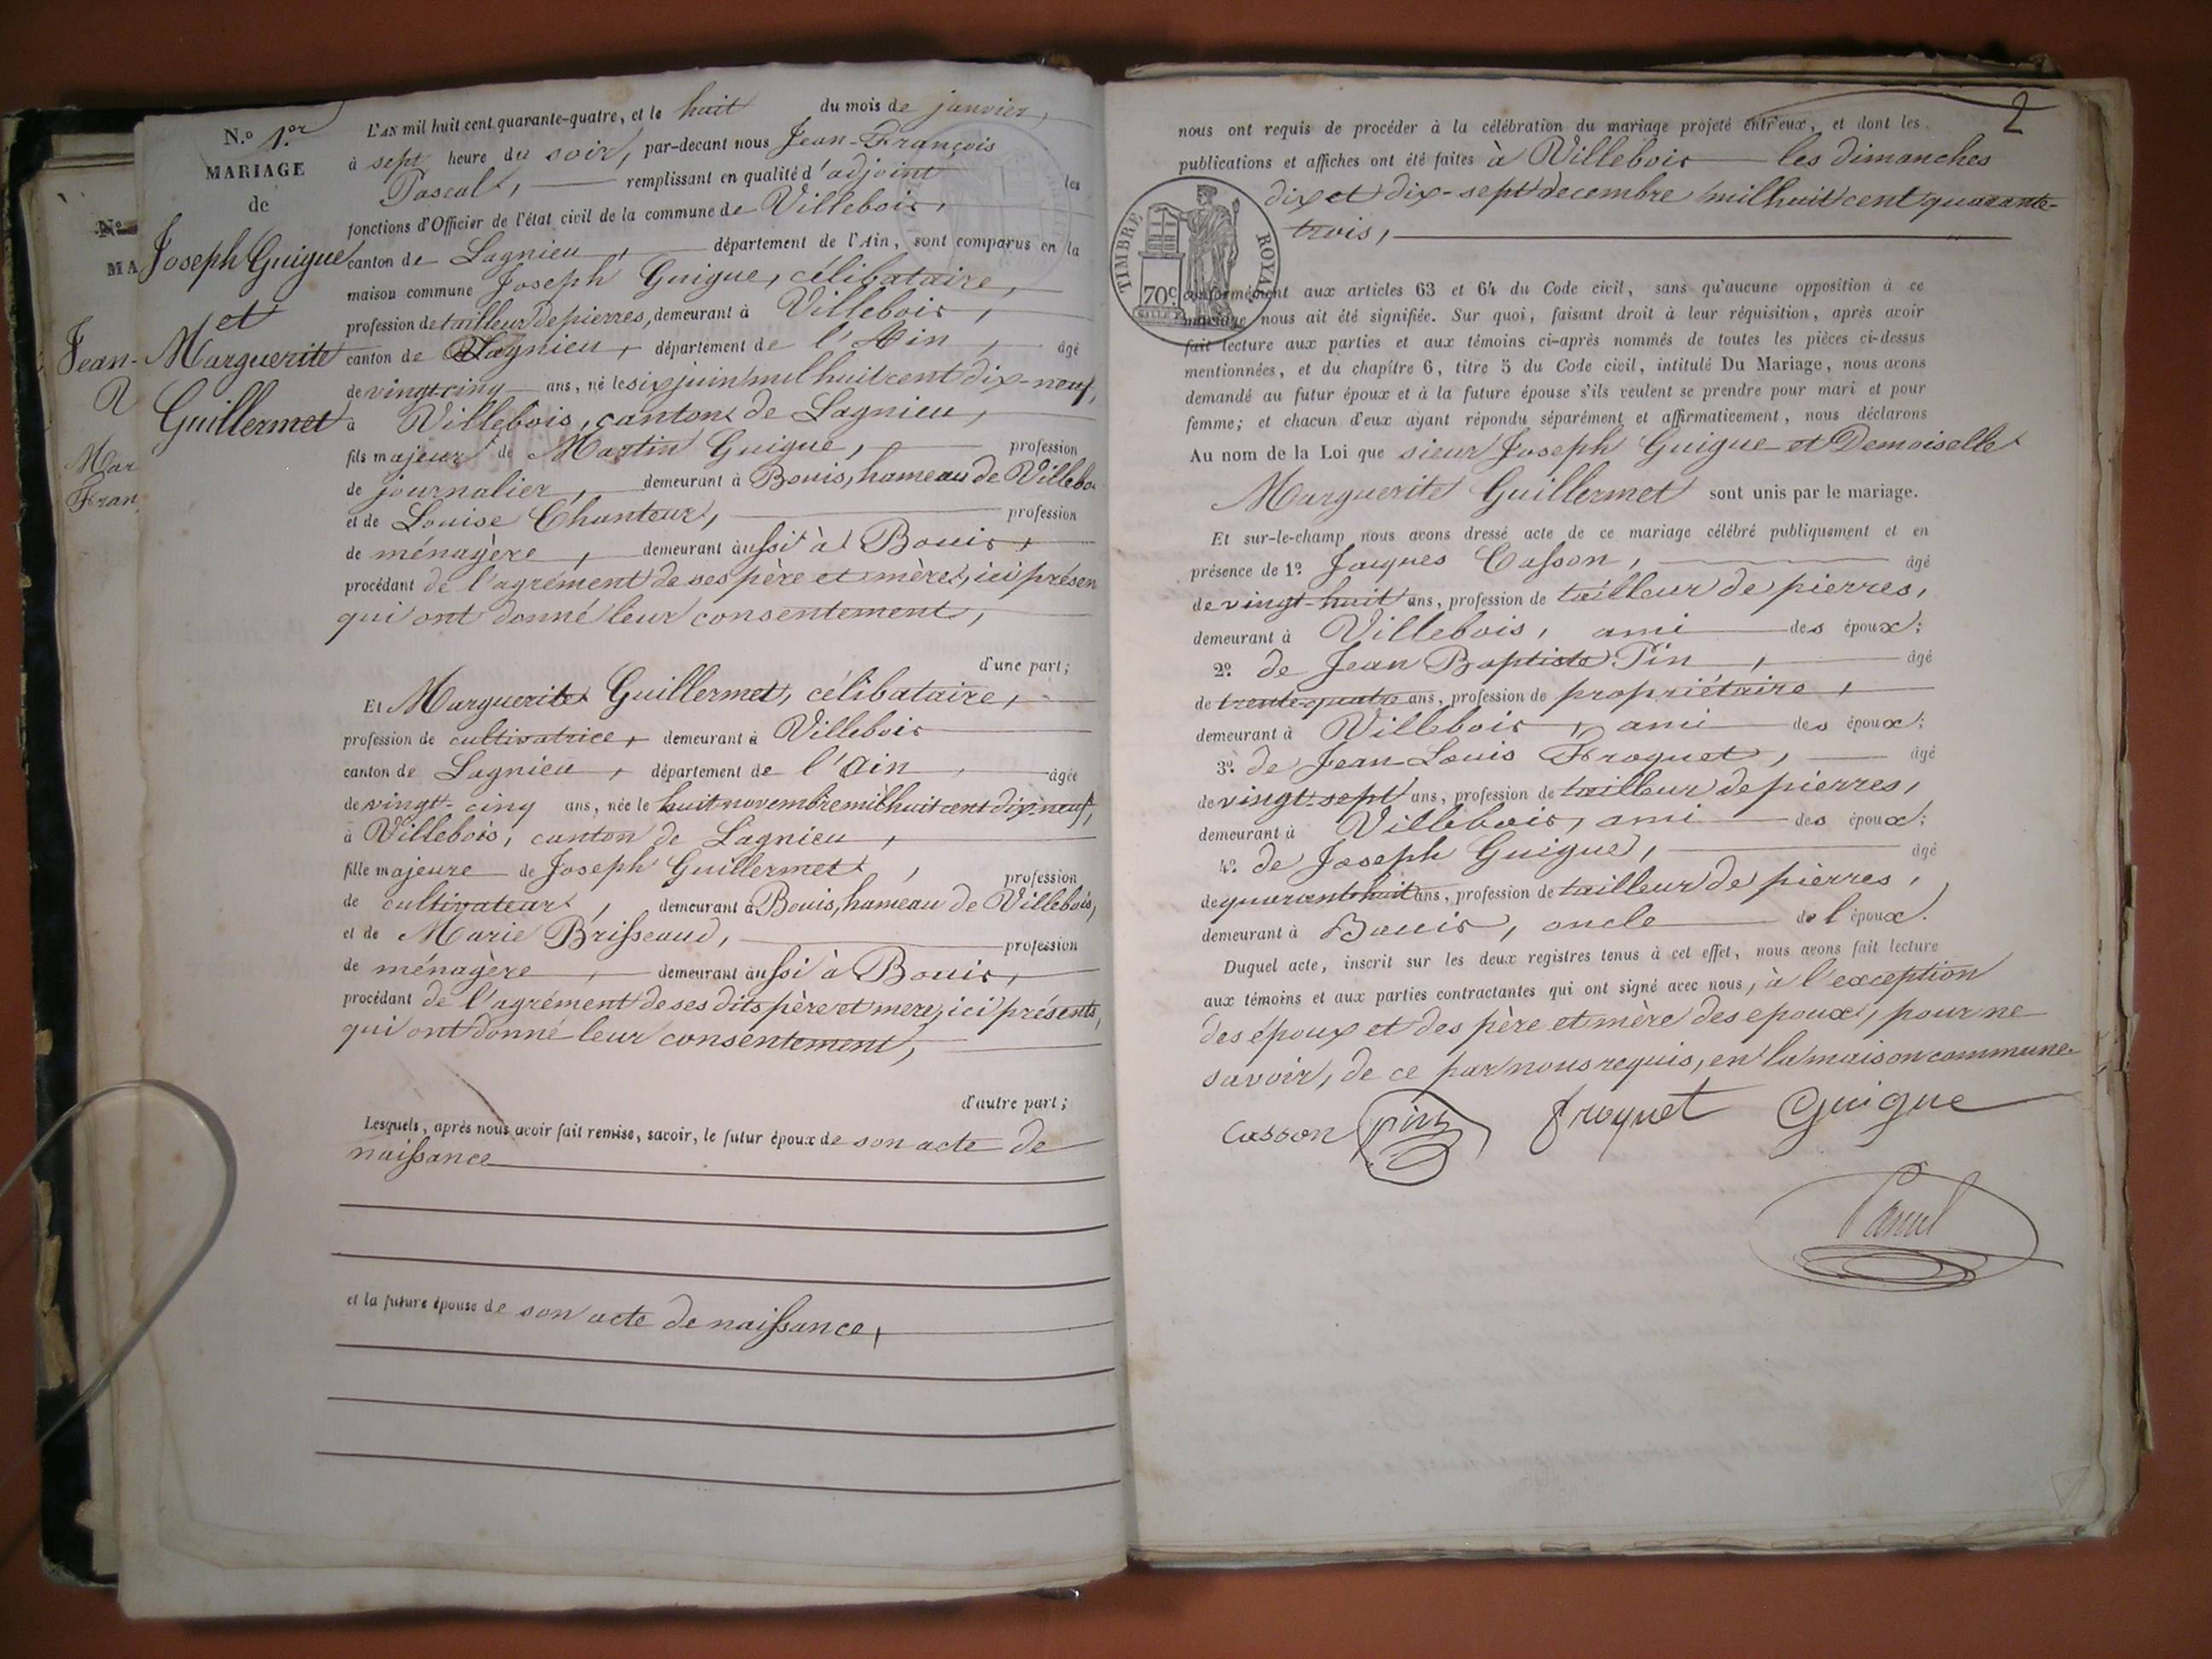 N.º 1.er
MARIAGE
de
Joseph Guigue
et
Marguerite
Guillermet
N.º
MA
Jean-
Mar
Fran
L'AN mil huit cent quarante-quatre, et le huit du mois de janvier,
à sept heure du soir, par-devant nous Jean-François
Pascal, remplissant en qualité d'adjoint les
fonctions d'Officier de l'état civil de la commune de Villebois,
canton de Lagnieu, département de l'Ain, sont comparus en la
maison commune Joseph Guigue, célibataire,
profession de tailleur de pierres, demeurant à Villebois,
canton de Lagnieu, département de l'Ain, âgé
de vingt-cinq ans, né le six juin mil huit cent dix-neuf,
à Villebois, canton de Lagnieu,
fils majeur de Martin Guigue, profession
de journalier, demeurant à Bouis, hameau de Villebo
et de Louise Chanteur, profession
de ménagère, demeurant aussi à Bouis,
procédant de l'agrément de ses père et mère, ici présen
qui ont donné leur consentement,
d'une part;
Et Marguerite Guillermet, célibataire,
profession de cultivatrice, demeurant à Villebois
canton de Lagnieu, département de l'Ain, âgée
de vingt-cinq ans, née le huit novembre mil huit cent dix-neuf,
à Villebois, canton de Lagnieu,
fille majeure de Joseph Guillermet, profession
de cultivateur, demeurant à Bouis, hameau de Villebois,
et de Marie Brisseaud, profession
de ménagère, demeurant aussi à Bouis,
procédant de l'agrément de ses dits père et mere, ici présents,
qui ont donné leur consentement,
d'autre part;
Lesquels, après nous avoir fait remise, savoir, le futur époux de son acte de
naissance
et la future épouse de son acte de naissance,
2
nous ont requis de procéder à la célébration du mariage projeté entr'eux, et dont les
publications et affiches ont été faites à Villebois les dimanches
dix et dix-sept decembre mil huit cent quarante-
trois,
TIMBRE ROYAL
70c
conformément aux articles 63 et 64 du Code civil, sans qu'aucune opposition à ce
mariage nous ait été signifiée. Sur quoi, faisant droit à leur réquisition, après avoir
fait lecture aux parties et aux témoins ci-après nommés de toutes les pièces ci-dessus
mentionnées, et du chapitre 6, titre 5 du Code civil, intitulé Du Mariage, nous avons
demandé au futur époux et à la future épouse s'ils veulent se prendre pour mari et pour
femme; et chacun d'eux ayant répondu séparément et affirmativement, nous déclarons
Au nom de la Loi que sieur Joseph Guigue et Demoiselle
Marguerite Guillermet sont unis par le mariage.
Et sur-le-champ nous avons dressé acte de ce mariage célébré publiquement et en
présence de 1º Jacques Casson, âgé
de vingt-huit ans, profession de tailleur de pierres,
demeurant à Villebois, ami des époux;
2º de Jean Baptiste Pin, âgé
de trente-quatre ans, profession de propriétaire,
demeurant à Villebois, ami des époux;
3º de Jean-Louis Froquet, âgé
de vingt-sept ans, profession de tailleur de pierres,
demeurant à Villebois, ami des époux;
4º de Joseph Guigue, âgé
de quarante huit ans, profession de tailleur de pierres,
demeurant à Bouis, oncle de l'époux.
Duquel acte, inscrit sur les deux registres tenus à cet effet, nous avons fait lecture
aux témoins et aux parties contractantes qui ont signé avec nous, à l'exception
des époux et des père et mère des epoux, pour ne
savoir, de ce par nous requis, en la maison commune
Casson Pin froquet Guigue
Pascal